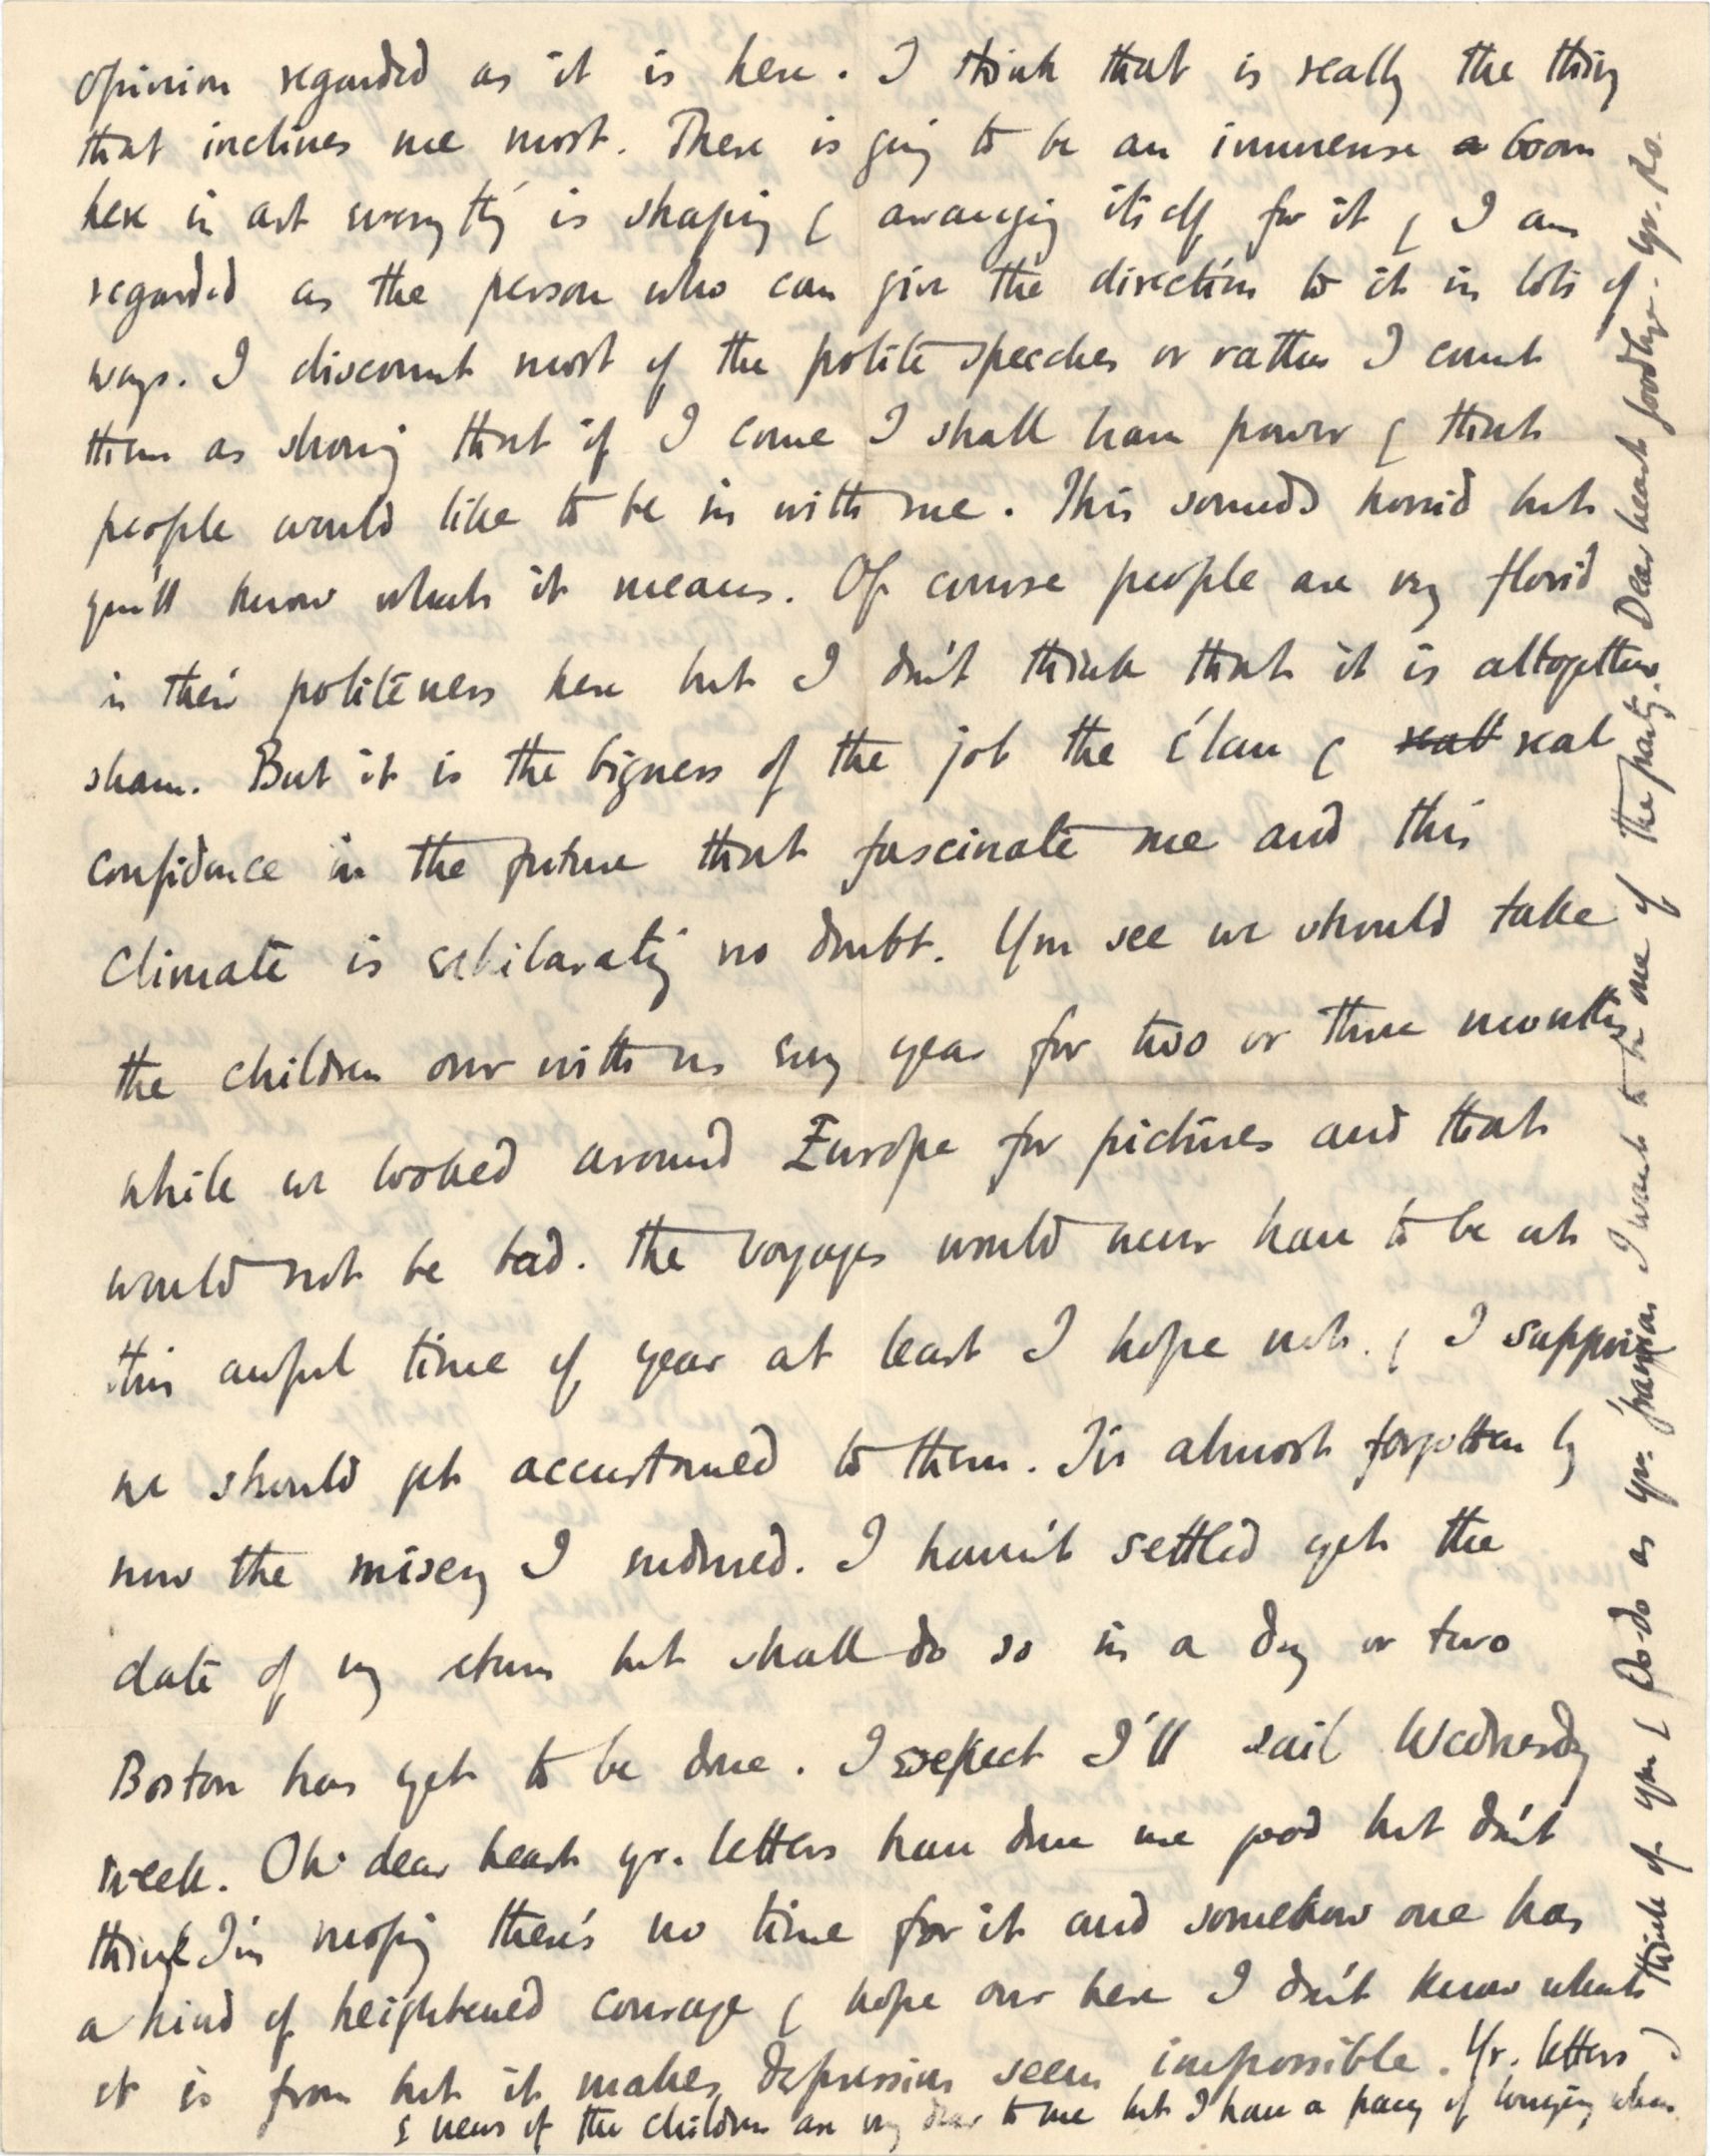 opinion regarded as it is here. I think that is really the thing
that inclines me most. There is going to be an immense a boom
here in art everything is shaping & arranging itself for it & I am
regarded as the person who can give the direction to it in lots of
ways. I discount most of the polite speeches or rather I count
them as showing that if I come I shall have power & that
people would like to be in with me. This sounds horrid but
you'll know what it means. Of course people are very florid
in their politeness here but I don't think that it is altogether
sham. But it is the bigness of the job the élan & real
confidence in the future that fascinate me and this
climate is exhilarating no doubt. You see we should take
the children over with us every year for two or three months
while we looked around Europe for pictures and that
would not be bad. The voyages would never have to be at
this awful time of year at least I hope not. & I suppose
we should get accustomed to them. It's almost forgotten by
now the misery I endured. I haven't settled yet the
date of my return but shall do so in a day or two
Boston has yet to be done. I expect I'll sail Wednesday
week. Oh dear heart yr. letters have done me good but don't
think I'm moping there's no time for it and somehow one has
a kind of heightened courage & hope over here I don't know what
it is from but it makes depression seem impossible. Yr. letters
& news of the children are very dear to me but I have a pang of longing when I
think of you & Po-do as yr. I want to be one of the party. Dear heart goodbye. Yr. Ro.